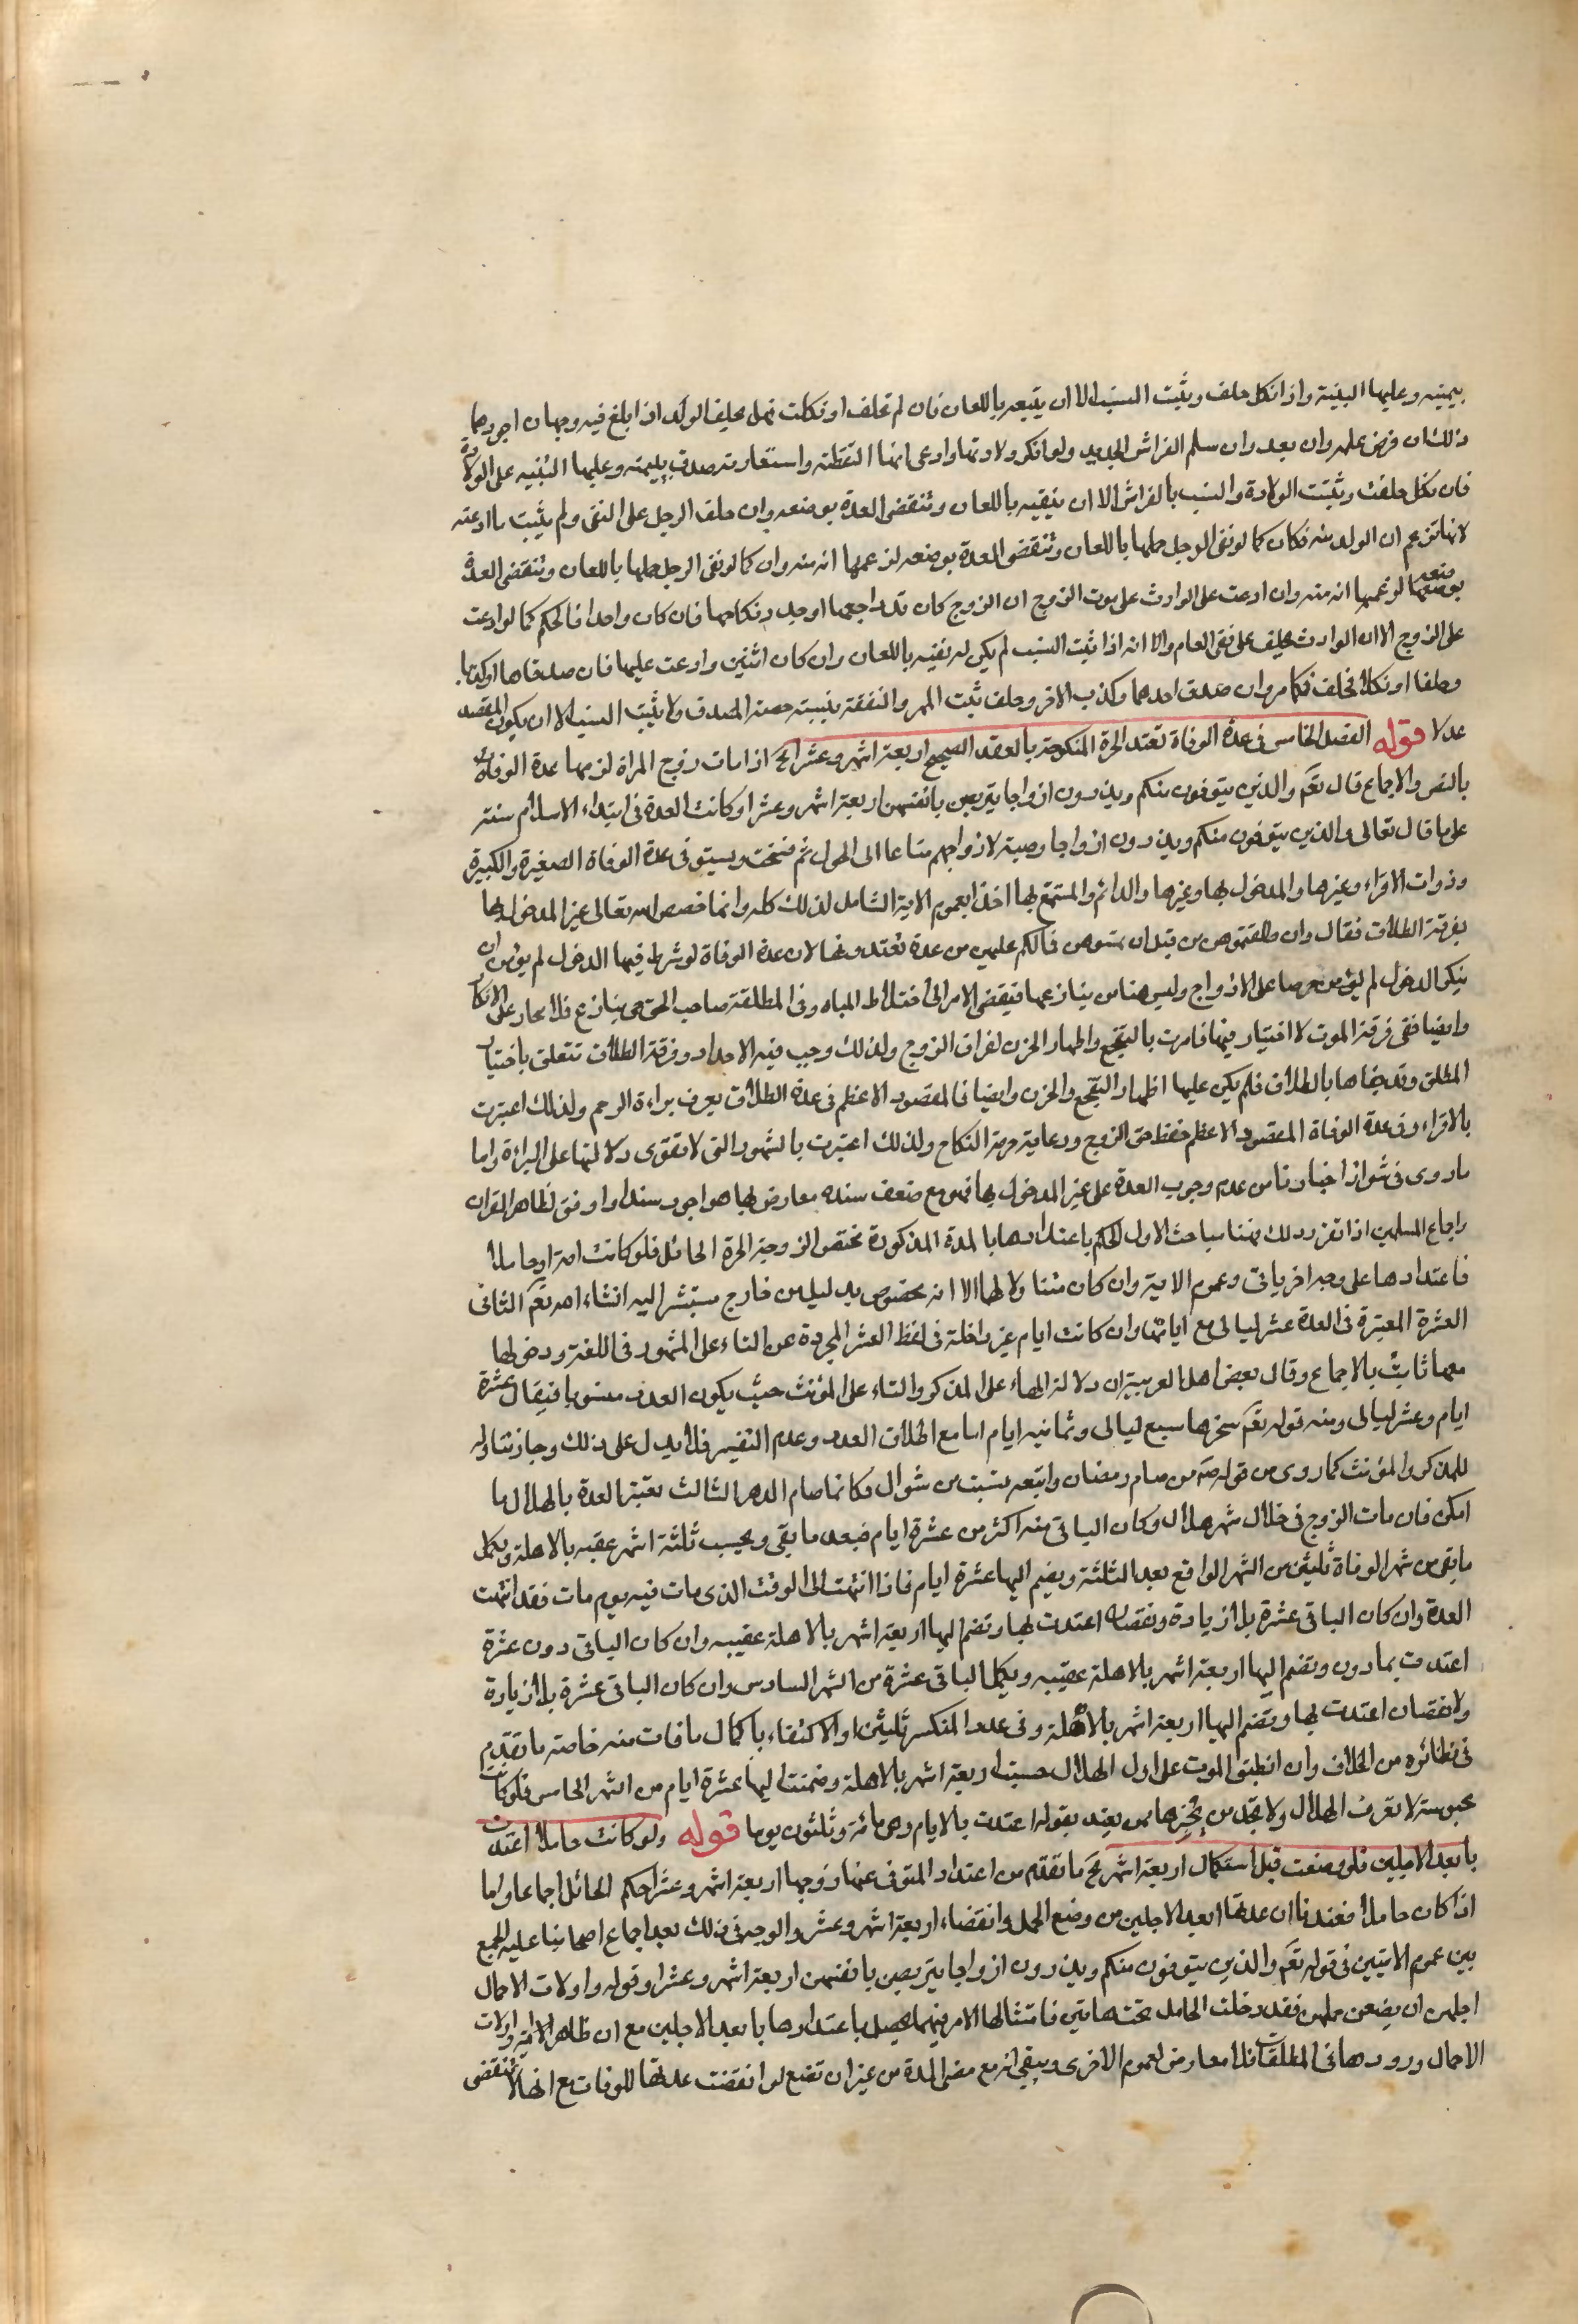 بيمينه وعليها البينة واذا نكل حلفت ويثبت النسب الا ان يتبعه باللعان فان لم تحلف او نكلت فهل يحلف الولد اذا بلغ فيه وجهان اجودهما
ذلك ان فرض علمه وان بعد وان سلم الفراش الجديد ولو انكر ولادتها وادعى انها التقطته واستعارته صدق بيمينه وعليها البينة على الولادة
فان نكل حلفت ويثبت الولادة والنسب بالفراش الا ان ينفيه باللعان وتنقضى العدة بوضعه وان حلف الرجل على النفى ولم يثبت ما ادعته
لانها تزعم ان الولد منه فكان كما لو نفى الرجل حملها باللعان وتنقضى العدة بوضعه لزعمها انه منه وان كما لو نفى الرجل حملها باللعان وتنقضى العدة
بوضعه لزعمها انه منه وان ادعت على الوارث على موت الزوج ان الزوج كان قد راجعها او جدد نكاحها فان كان واحدا فالحكم كما لو ادعت
على الزوج الا ان الوارث يحلف على نفى العلم والا انه اذا ثبت النسب لم يكن له نفيه باللعان وان كان اثنين وادعت عليهما فان صدقاها او كذباها
وحلفا او نكلا فحلفت فكما مر وان صدق احدهما وكذب الاخر وحلف ثبت المهر والنفقة بنسبته حصة المصدق ولا يثبت النسب الا ان يكون المصدق
عدلا قوله الفصل الخامس فى عدة الوفاة تعتد الحرة المنكوحة بالعقد الصحيح اربعة اشهر وعشرا الخ اذا مات زوج المراة لزمها عدة الوفاة
بالنص والاجماع قال تعم والذين يتوفون منكم ويذرون ازواجا يتربصن بانفسهن اربعة اشهر وعشرا وكانت العدة فى ابتداء الاسلام سنة
على ما قال تعالى والذين يتوفون منكم ويذرون ازواجا وصية لازواجهم متاعا الى الحول ثم نسخت ويستوى فى عدة الوفاة الصغيرة والكبيرة
وذوات الاقراء وغيرها والمدخول بها وغيرها والدائم والمستمتع بها اخذا بعموم الاية الشامل لذلك كله وانما خصص الله تعالى غير المدخول بها
بفرقة الطلاق فقال وان طلقتموهن من قبل ان تمسوهن فما لكم عليهن من عدة تعتدونها لان عدة الوفاة لو شرط فيها الدخول لم يؤمن ان
ينكر الدخول لم يؤمن حرصا على الازواج وليس هنا من ينازعها فيفضى الامر الى اختلاط المياه وفى المطلقة صاحب الحق حى ينازع فلا تجاسر على الانكار
وايضا ففى فرقة الموت لا اختيار فيها فامرت بالتفجع واظهار الحزن لفراق الزوج ولذلك وجب فيه الاحداد وفرقة الطلاق تتعلق باختيار
المطلق وقد جفاها بالطلاق فلم يكن عليها اظهار التفجع والحزن وايضا فالمقصود الاعظم فى عدة الطلاق يعرف براءة الرحم ولذلك اعتبرت
بالاقراء وفى عدة الوفاة المقصود الاعظم حفظ حق الزوج ورعاية حرمة النكاح ولذلك اعتبرت بالشهور التى لا تقوى دلالتها على البراءة واما
ما روى فى شواذ اخبارنا من عدم وجوب العدة على غير المدخول بها فهو مع ضعف سنده معارض بما هو اجود سندا واوفق لظاهر القران
واجماع المسلمين اذا تقرر ذلك فهنا مباحث الاول الحكم باعتدادها بالمدة المذكورة تختص الزوجة الحرة الحائل فلو كانت امة او حاملا
فاعتدادها على وجه اخر ياتى وعموم الاية وان كان متناولا لها الا انه مخصوص بدليل من خارج سنشير اليه انشاء الله تعم الثانى
العشرة المعتبرة فى العدة عشر ليالى مع ايامها وان كانت ايام غير داخلة فى لفظ العشر المجردة عن التاء على المشهور فى اللغة ودخولها
معها ثابت بالاجماع وقال بعض اهل العربية ان دلالة الهاء على المذكر والتاء على المؤنث حيث يكون العدد منسوبا فيقال عشرة
ايام وعشر ليالى ومنه قوله تعم سخرها سبع ليالى وثمانية ايام اما مع اطلاق العدد وعدم التفسير فلا يدل على ذلك وجاز تناوله
للمذكر والمؤنث كما روى من قوله ص من صام رمضان واتبعه بست من شوال فكانما صام الدهر الثالث تعتبر العدة بالهلال ما
امكن فان مات الزوج فى خلال شهر هلال وكان الباقى منه اكثر من عشرة ايام فيعد ما بقى ويحسب ثلثة اشهر عقبه بالاهلة ويكمل
ما بقى من شهر الوفاة ثلثين من الشهر الواقع بعد الثلثة ويضم اليها عشرة ايام فاذا انتهت الى الوقت الذى مات فيه يوم مات فقد انتهت
العدة وان كان الباقى عشرة بلا زيادة ونقصان اعتدت بها وتضم اليها اربعة اشهر بالاهلة عقيبه وان كان الباقى دون عشرة
اعتدت بما دون وتضم اليها اربعة اشهر بالاهلة عقيبه ويكمل الباقى عشرة من الشهر السادس وان كان الباقى عشرة بلا زيادة
ولا نقصان اعتدت بها وتضم اليها اربعة اشهر بالاهلة وفى عد المنكسر ثلثين او الاكتفاء باكمال ما فات منه خاصة ما تقدم
فى نظائره من الخلاف وان انطبق الموت على اول الهلال حسبت اربعة اشهر بالاهلة وضمنت اليها عشرة ايام من الشهر الخامس فلو كانت
محبوسة لا تعرف الهلال ولا تجد من يخبرها ممن يعتد بقوله اعتدت بالايام وهى مائة وثلثون يوما قوله ولو كانت حاملا اعتدت
بابعد الاجلين فلو وضعت قبل استكمال اربعة اشهر الخ ما تقدم من اعتداد المتوفى عنها زوجها اربعة اشهر وعشرا حكم الحائل اجماعا واما
اذا كان حاملا فعندنا ان عدتها ابعد الاجلين من وضع الحمل وانقضاء اربعة اشهر وعشر والوجه فى ذلك بعد اجماع اصحابنا عليه الجمع
بين عموم الايتين فى قوله تعم والذين يتوفون منكم ويذرون ازواجا يتربصن بانفسهن اربعة اشهر وعشرا وقوله واولات الاحمال
اجلهن ان يضعن حملهن فقد دخلت الحامل تحتهما تين فامتثالها الامر فيهما يحصل باعتدادها بابعد الاجلين مع ان ظاهر الاية اولات
الاحمال ورودها فى المطلقات فلا معارض لعموم الاخرى ويبقى انه مع مضى المدة من غير ان تضع لو انقضت عدتها للوفات مع انها لا تنقضى